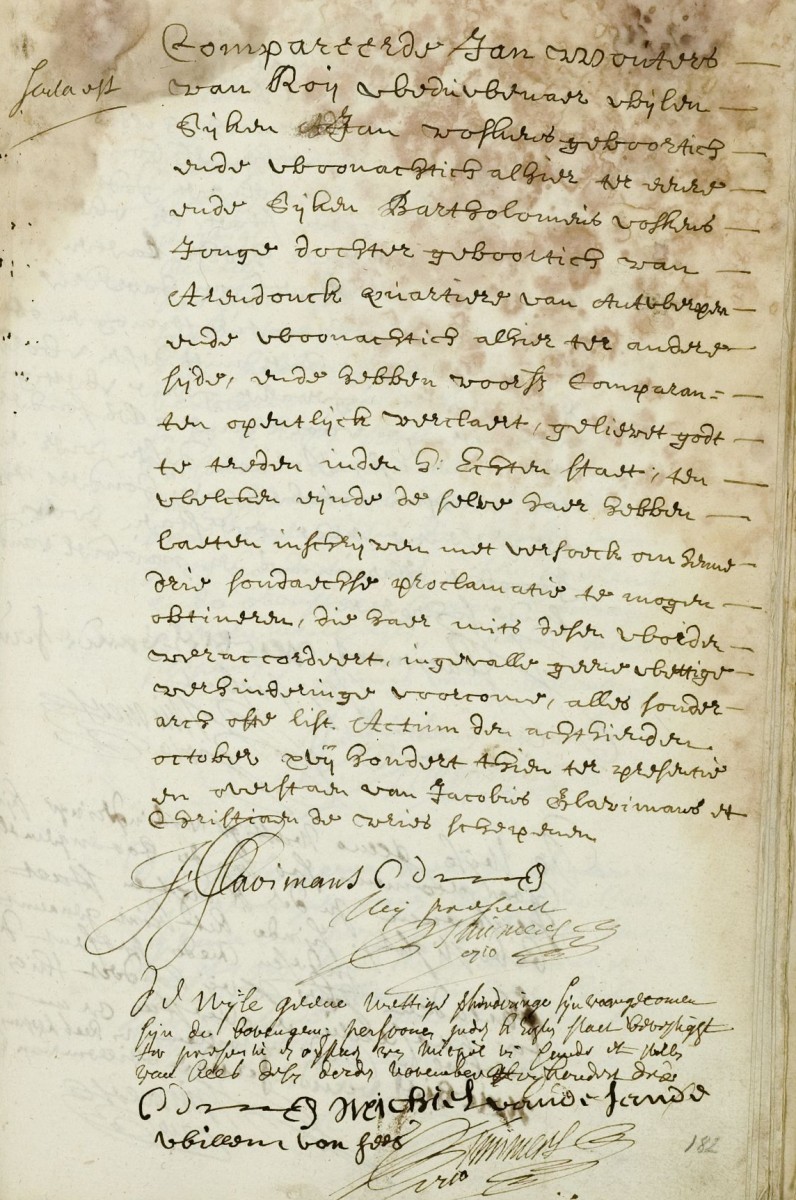 facta est
Compareerde Jan Wouters
van Roij wbeduwbenaer wbijlen
Sijken Jan voskens geboortich
ende wboonachtich alhier ter eenre
ende Sijken Bartholomeeus voskens
Jonge dochter geboortich van
Arendonck quartiere van Antwberpen
ende wboonachtich alhier ter andere
sijde, ende hebben voorsz Comparan=
ten opentlijck verclaert, gelievet godt
te treden inden h: Echten staet, ten
wbelcken eijnde de selve haer hebben
laeten inschrijven met versoeck om henne
drie sondaechse proclamatie te mogen
obtineren, die haer mits desen wborden
veraccordeert, ingevalle geene wbettige
verhinderinge voorcome, alles sonder
arch ofte list. Actum den achthienden
october xvij hondert thien ter presentie
en overstaen van Jacobus Clavimans et
Christiaen de vries schepenen
J. Clavimans
Mij present
1710
geene wettige hinderinge sijn voorgecomen
sijn de bovengem: persoonen staet bevestight
ter presentie
van Hees desen derde november
Michiel vande sande
wbillem von hees
1710
182